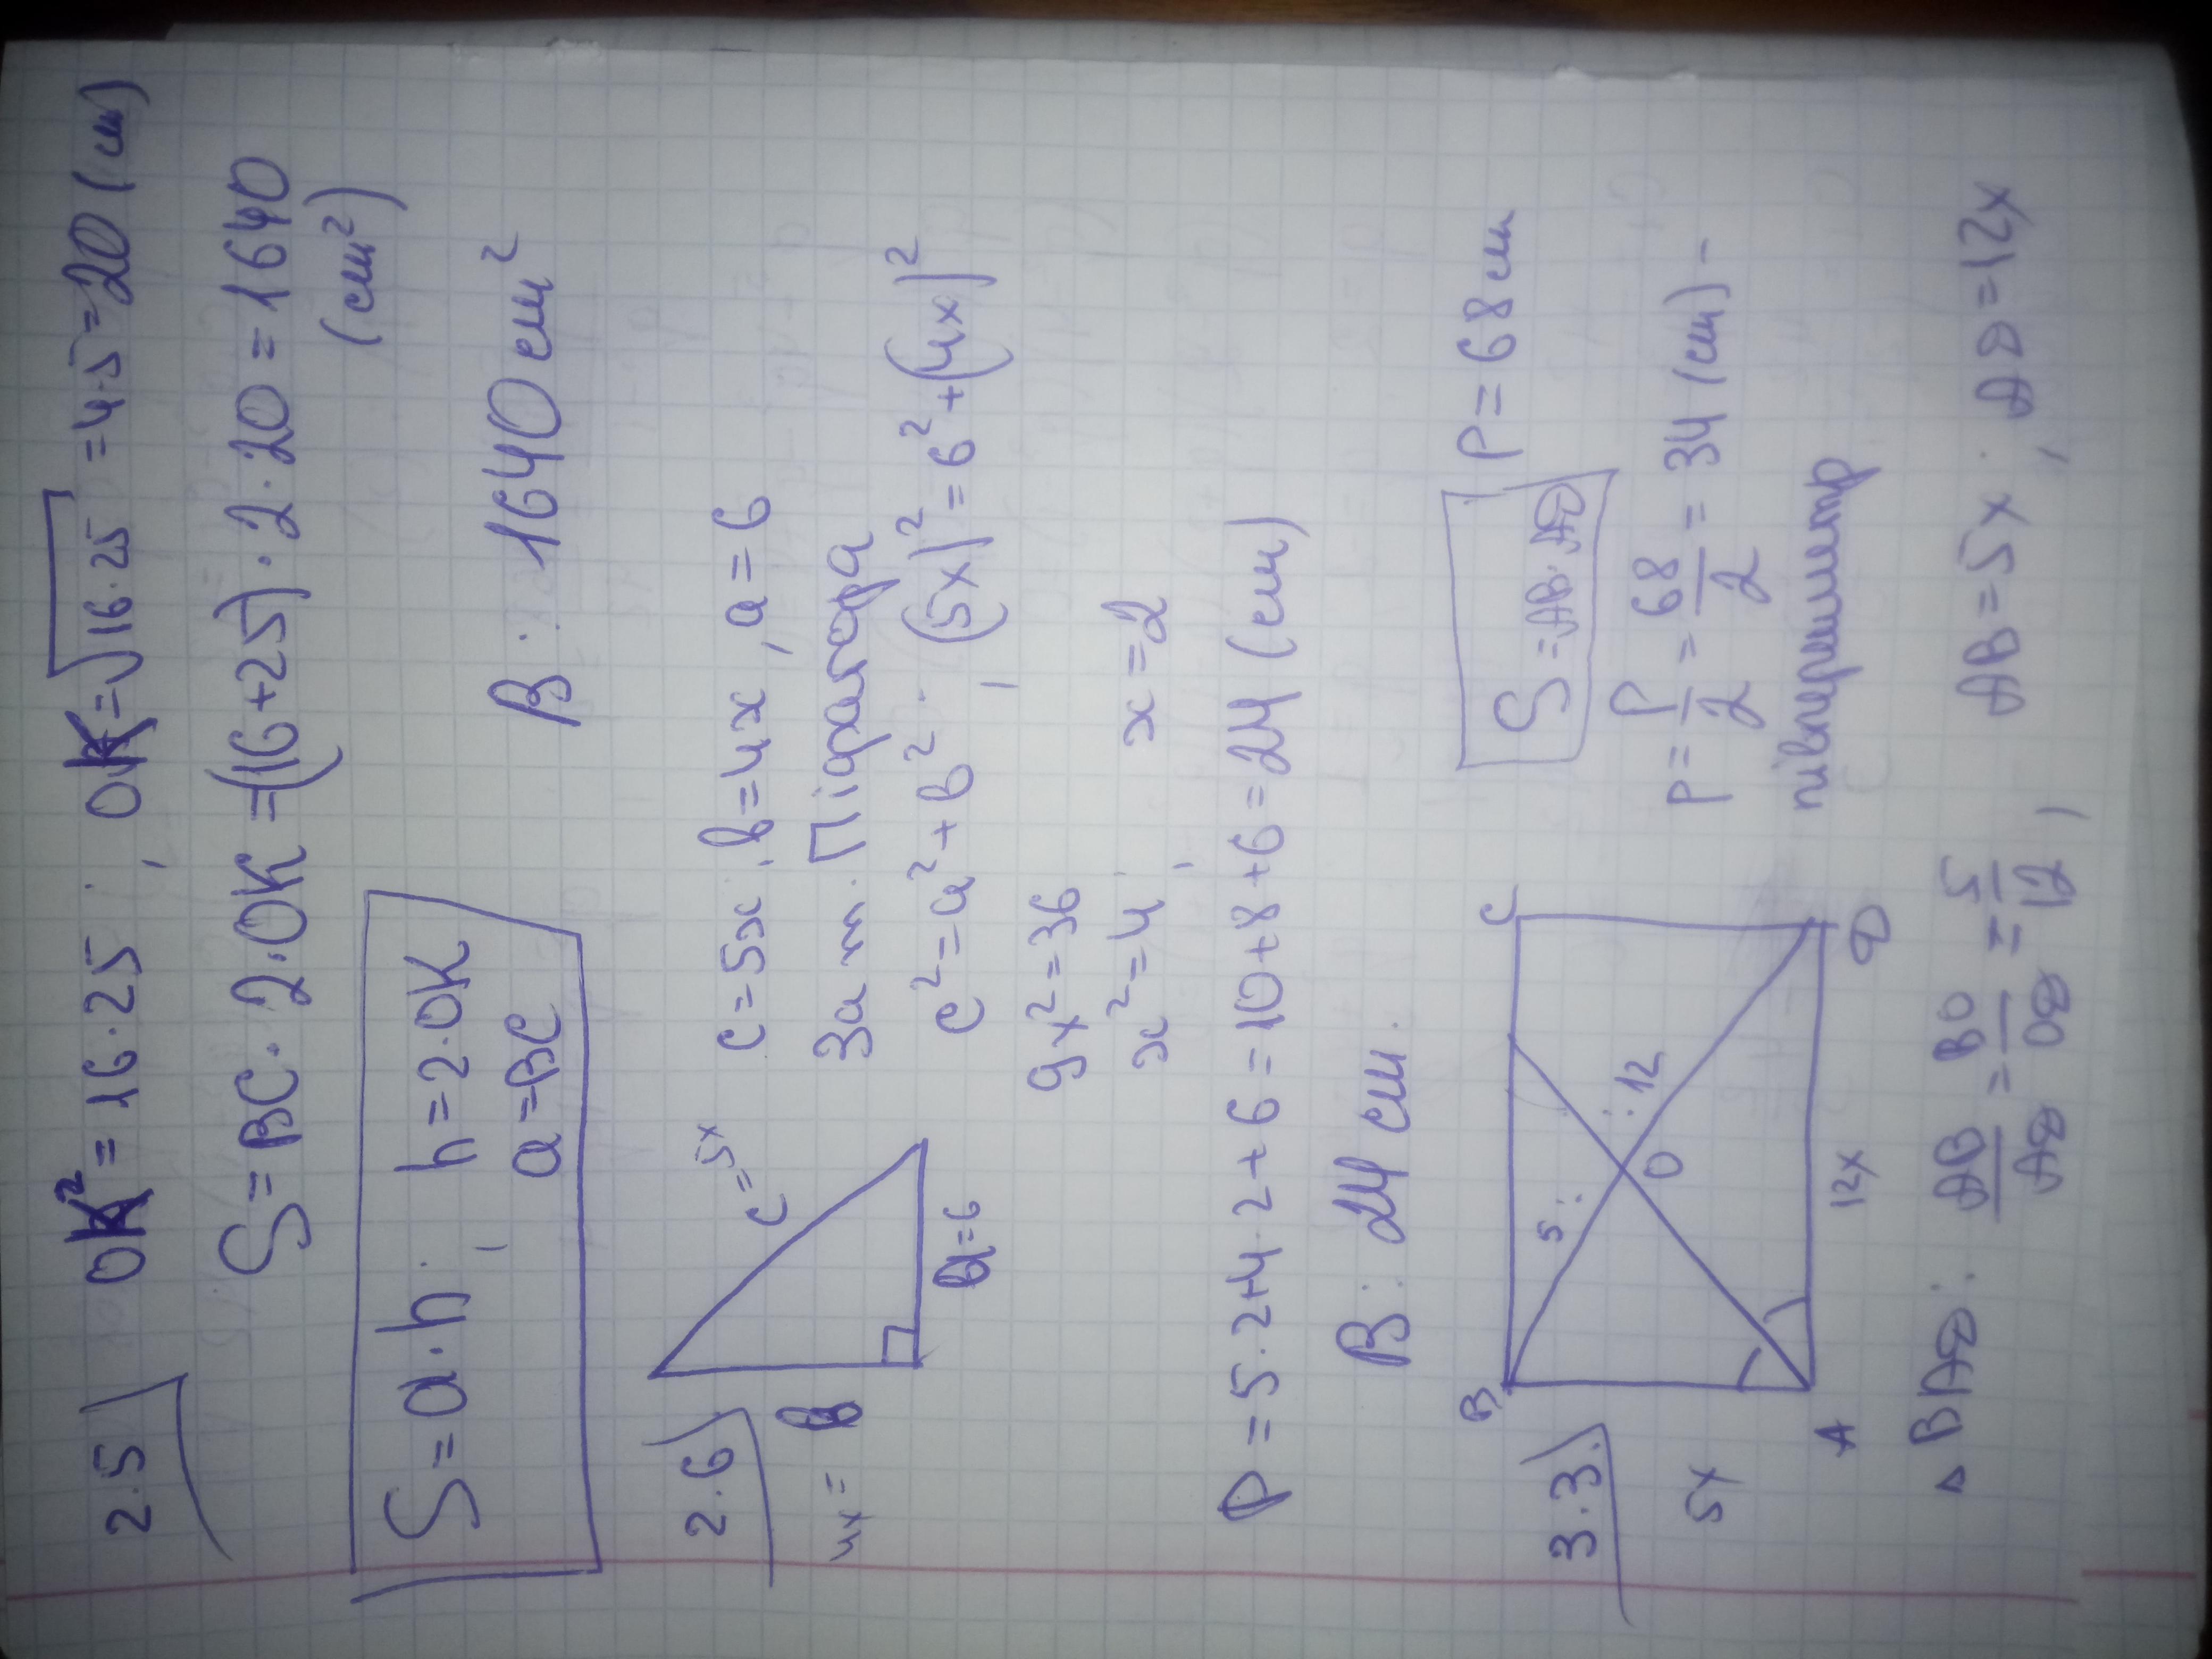 2.5) OK² = 16·25; OK = √16·25 = 4·5 = 20 (см)
S = BC·2·OK = (16+25)·2·20 = 1640
(см²)
S = a·h; h = 2·OK
a = BC
В: 1640 см²
2.6) c = 5x
4x = в
a = 6
c = 5x; в = 4x, a = 6
За т. Піфагора
c² = a² + в²; (5x)² = 6² + (4x)²
9x² = 36
x² = 4; x = 2
P = 5·2+4·2+6 = 10+8+6 = 24 (см)
В: 24 см.
3.3.) B C
5: :12
O
5x
A 12x D
S = AB·AD P = 68 см
p = P/2 = 68/2 = 34 (см) -
півпериметр
△ BAD: AB/AD = BO/OD = 5/12, AB = 5x; AD = 12x